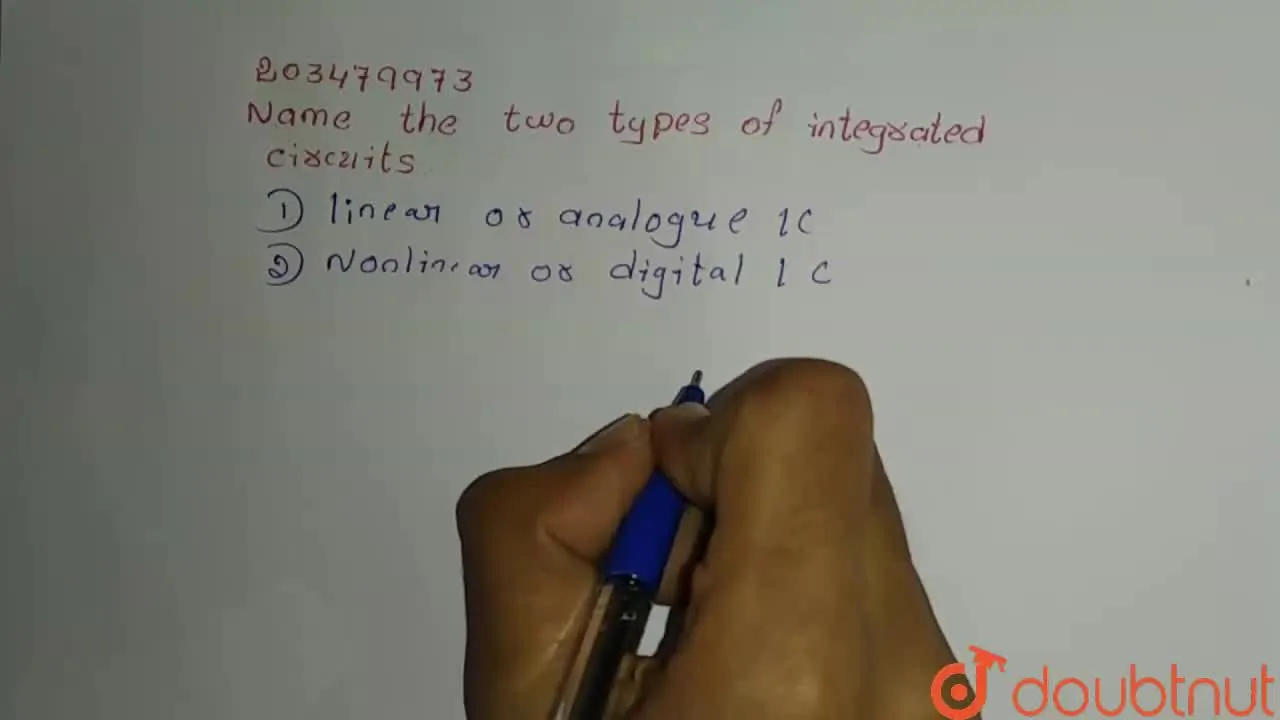 203479973
Name the two types of integrated
circuits
1) linear or analogue IC
2) Nonlinear or digital IC
doubtnut